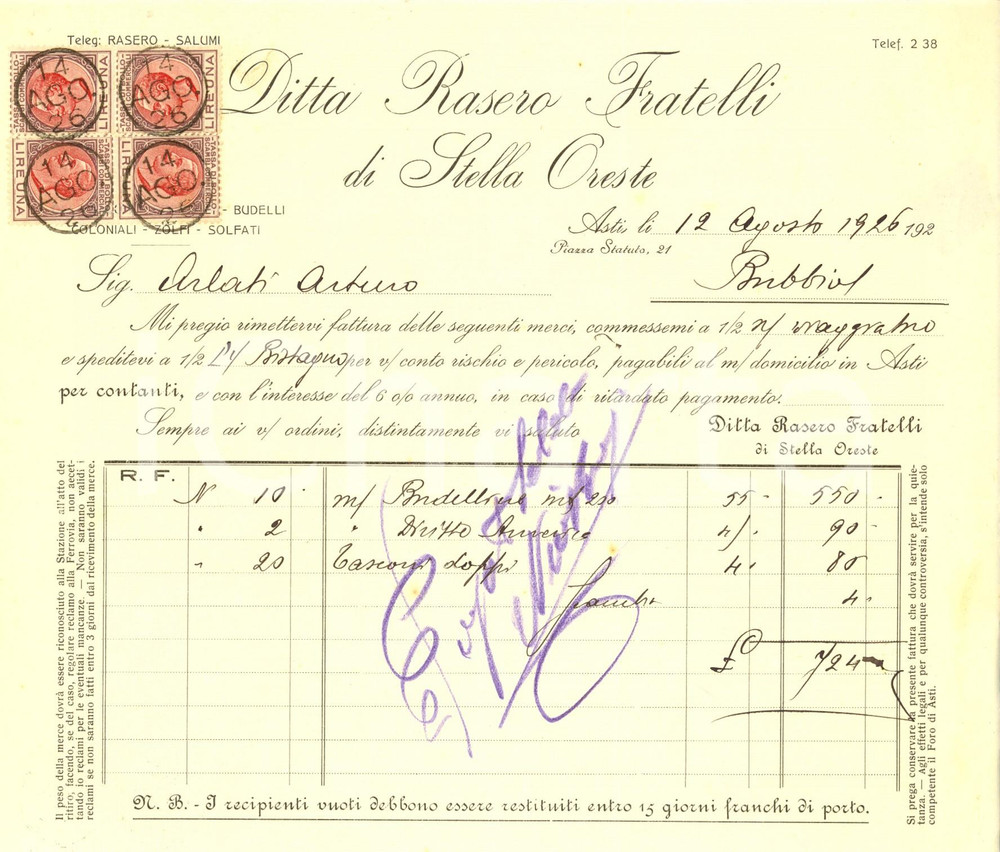 Teleg: RASERO - SALUMI
Telef. 2 38
Ditta Rasero Fratelli
di Stella Oreste
- BUDELLI
COLONIALI - ZOLFI - SOLFATI
TASSA DI BOLLO
SCAMBI COMMERCIALI
LIRE UNA
14 AGO 26
TASSA DI BOLLO
SCAMBI COMMERCIALI
LIRE UNA
14 AGO 26
TASSA DI BOLLO
SCAMBI COMMERCIALI
LIRE UNA
14 AGO 26
TASSA DI BOLLO
SCAMBI COMMERCIALI
LIRE UNA
14 AGO 26
Asti li 12 Agosto 1926 192
Piazza Statuto, 21
Sig. Arlati Arturo
Bubbio
Mi pregio rimettervi fattura delle seguenti merci, commessemi a 1/2
e speditevi a 1/2 Bistagno per v/ conto rischio e pericolo, pagabili al m/ domicilio in Asti
per contanti, e con l'interesse del 6 o/o annuo, in caso di ritardato pagamento.
Sempre ai v/ ordini, distintamente vi saluto
Ditta Rasero Fratelli
di Stella Oreste
R. F.
N 10 m/ 55 - 550 -
" 2 " Dritto 90 -
" 20 doppi 4. 80
4 -
£ 724
Il peso della merce dovrà essere riconosciuto alla Stazione all'atto del
ritiro, facendo, se del caso, regolare reclamo alla Ferrovia, non accet-
tando io reclami per le eventuali mancanze — Non saranno validi i
reclami se non saranno fatti entro 3 giorni dal ricevimento della merce.
Si prega conservare la presente fattura che dovrà servire per la quie-
tanza. — Agli effetti legali e per qualunque controversia, s'intende solo
competente il Foro di Asti.
N. B. - I recipienti vuoti debbono essere restituiti entro 15 giorni franchi di porto.